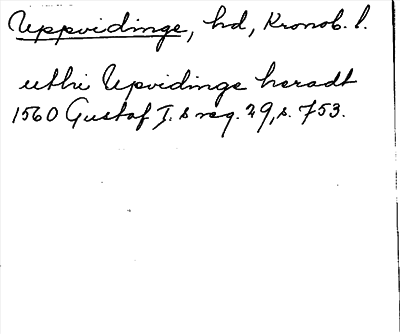 Uppvidinge, hd, Kronob. l.
uthi Upvidinge heradt
1560 Gustaf I.s reg. 29, s. 753.